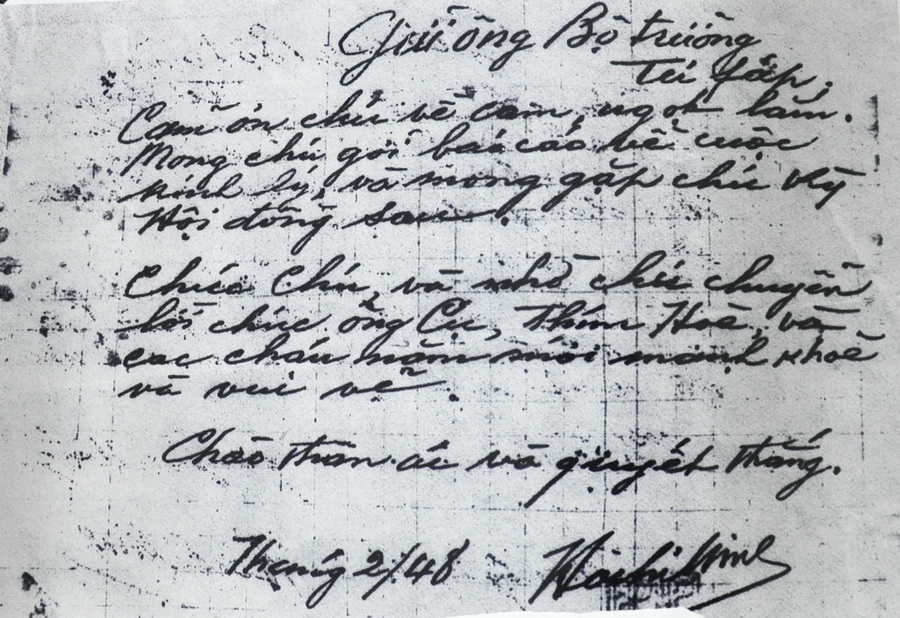 Gửi ông Bộ trưởng
Tư pháp,
Cảm ơn chú về cam, ngọt lắm.
Mong chú gởi báo cáo về cuộc
kinh lý, và mong gặp chú kỳ
Hội đồng sau.
Chúc Chú, và nhờ chú chuyển
lời chúc ông Cụ, Thím Hoè, và
các cháu năm mới mạnh khoẻ
và vui vẻ.
Chào thân ái và quyết thắng.
Tháng 2/48 HoChiMinh